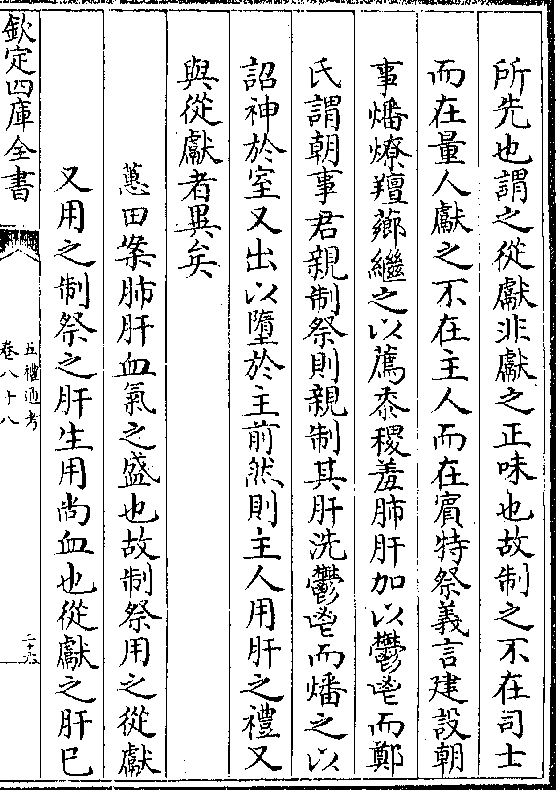 所先也謂之從獻非獻之正味也故制之不在司士
而在量人獻之不在主人而在賓特祭義言建設朝
事燔燎羶薌繼之以薦黍稷羞肺肝加以鬱鬯而鄭
氏謂朝事君親制祭則親制其肝洗鬱鬯而燔之以
詔神於室又出以墮於主前然則主人用肝之禮又
與從獻者異矣
蕙田案肺肝血氣之盛也故制祭用之從獻
又用之制祭之肝生用尚血也從獻之肝已
欽定四庫全書
五禮通考
卷八十八